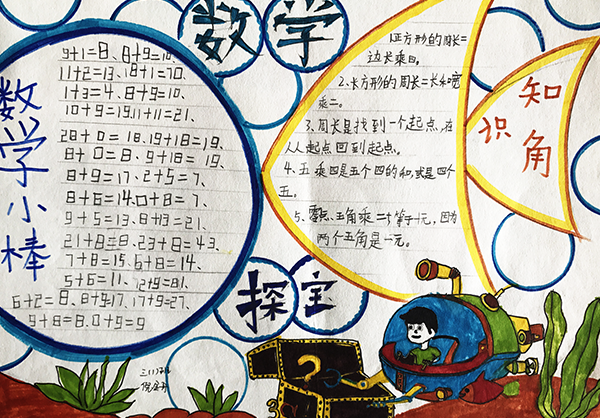 数学
探宝
数学小棒
9+1=8、8+9=10、
11+2=13、18+1=70、
1+3=4、8+9=10、
10+9=19、11+11=21、
28+0=18、19+18=19、
8+0=8、9+18=19、
8+9=17、2+5=7、
8+6=14、0+8=7、
9+5=13、8+13=21、
21+8=8、23+8=43、
7+8=15、6+8=14、
5+6=11、72+9=81、
6+2=8、8+9=17、17+9=27、
9+8=8、0+9=9
知识角
1.正方形的周长=
边长乘四。
2、长方形的周长=长和宽
乘二。
3、周长是找到一个起点,在
从起点回到起点。
4、五乘四是五个四的和,或是四个
五。
5、零点五角乘二等于一元,因为
两个五角是一元。
三、(1)